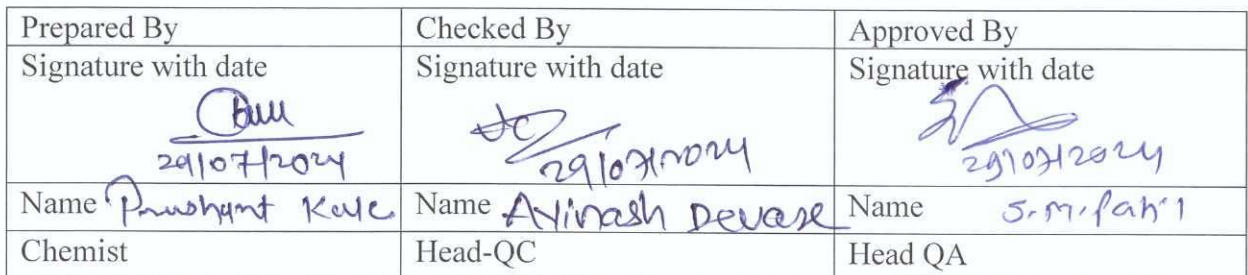 Prepared By Checked By Approved By
Signature with date Signature with date Signature with date
29/07/2024 29/07/2024 29/07/2024
Name Prashant Kale Name Avinash Devare Name S.M.Patil
Chemist Head-QC Head QA